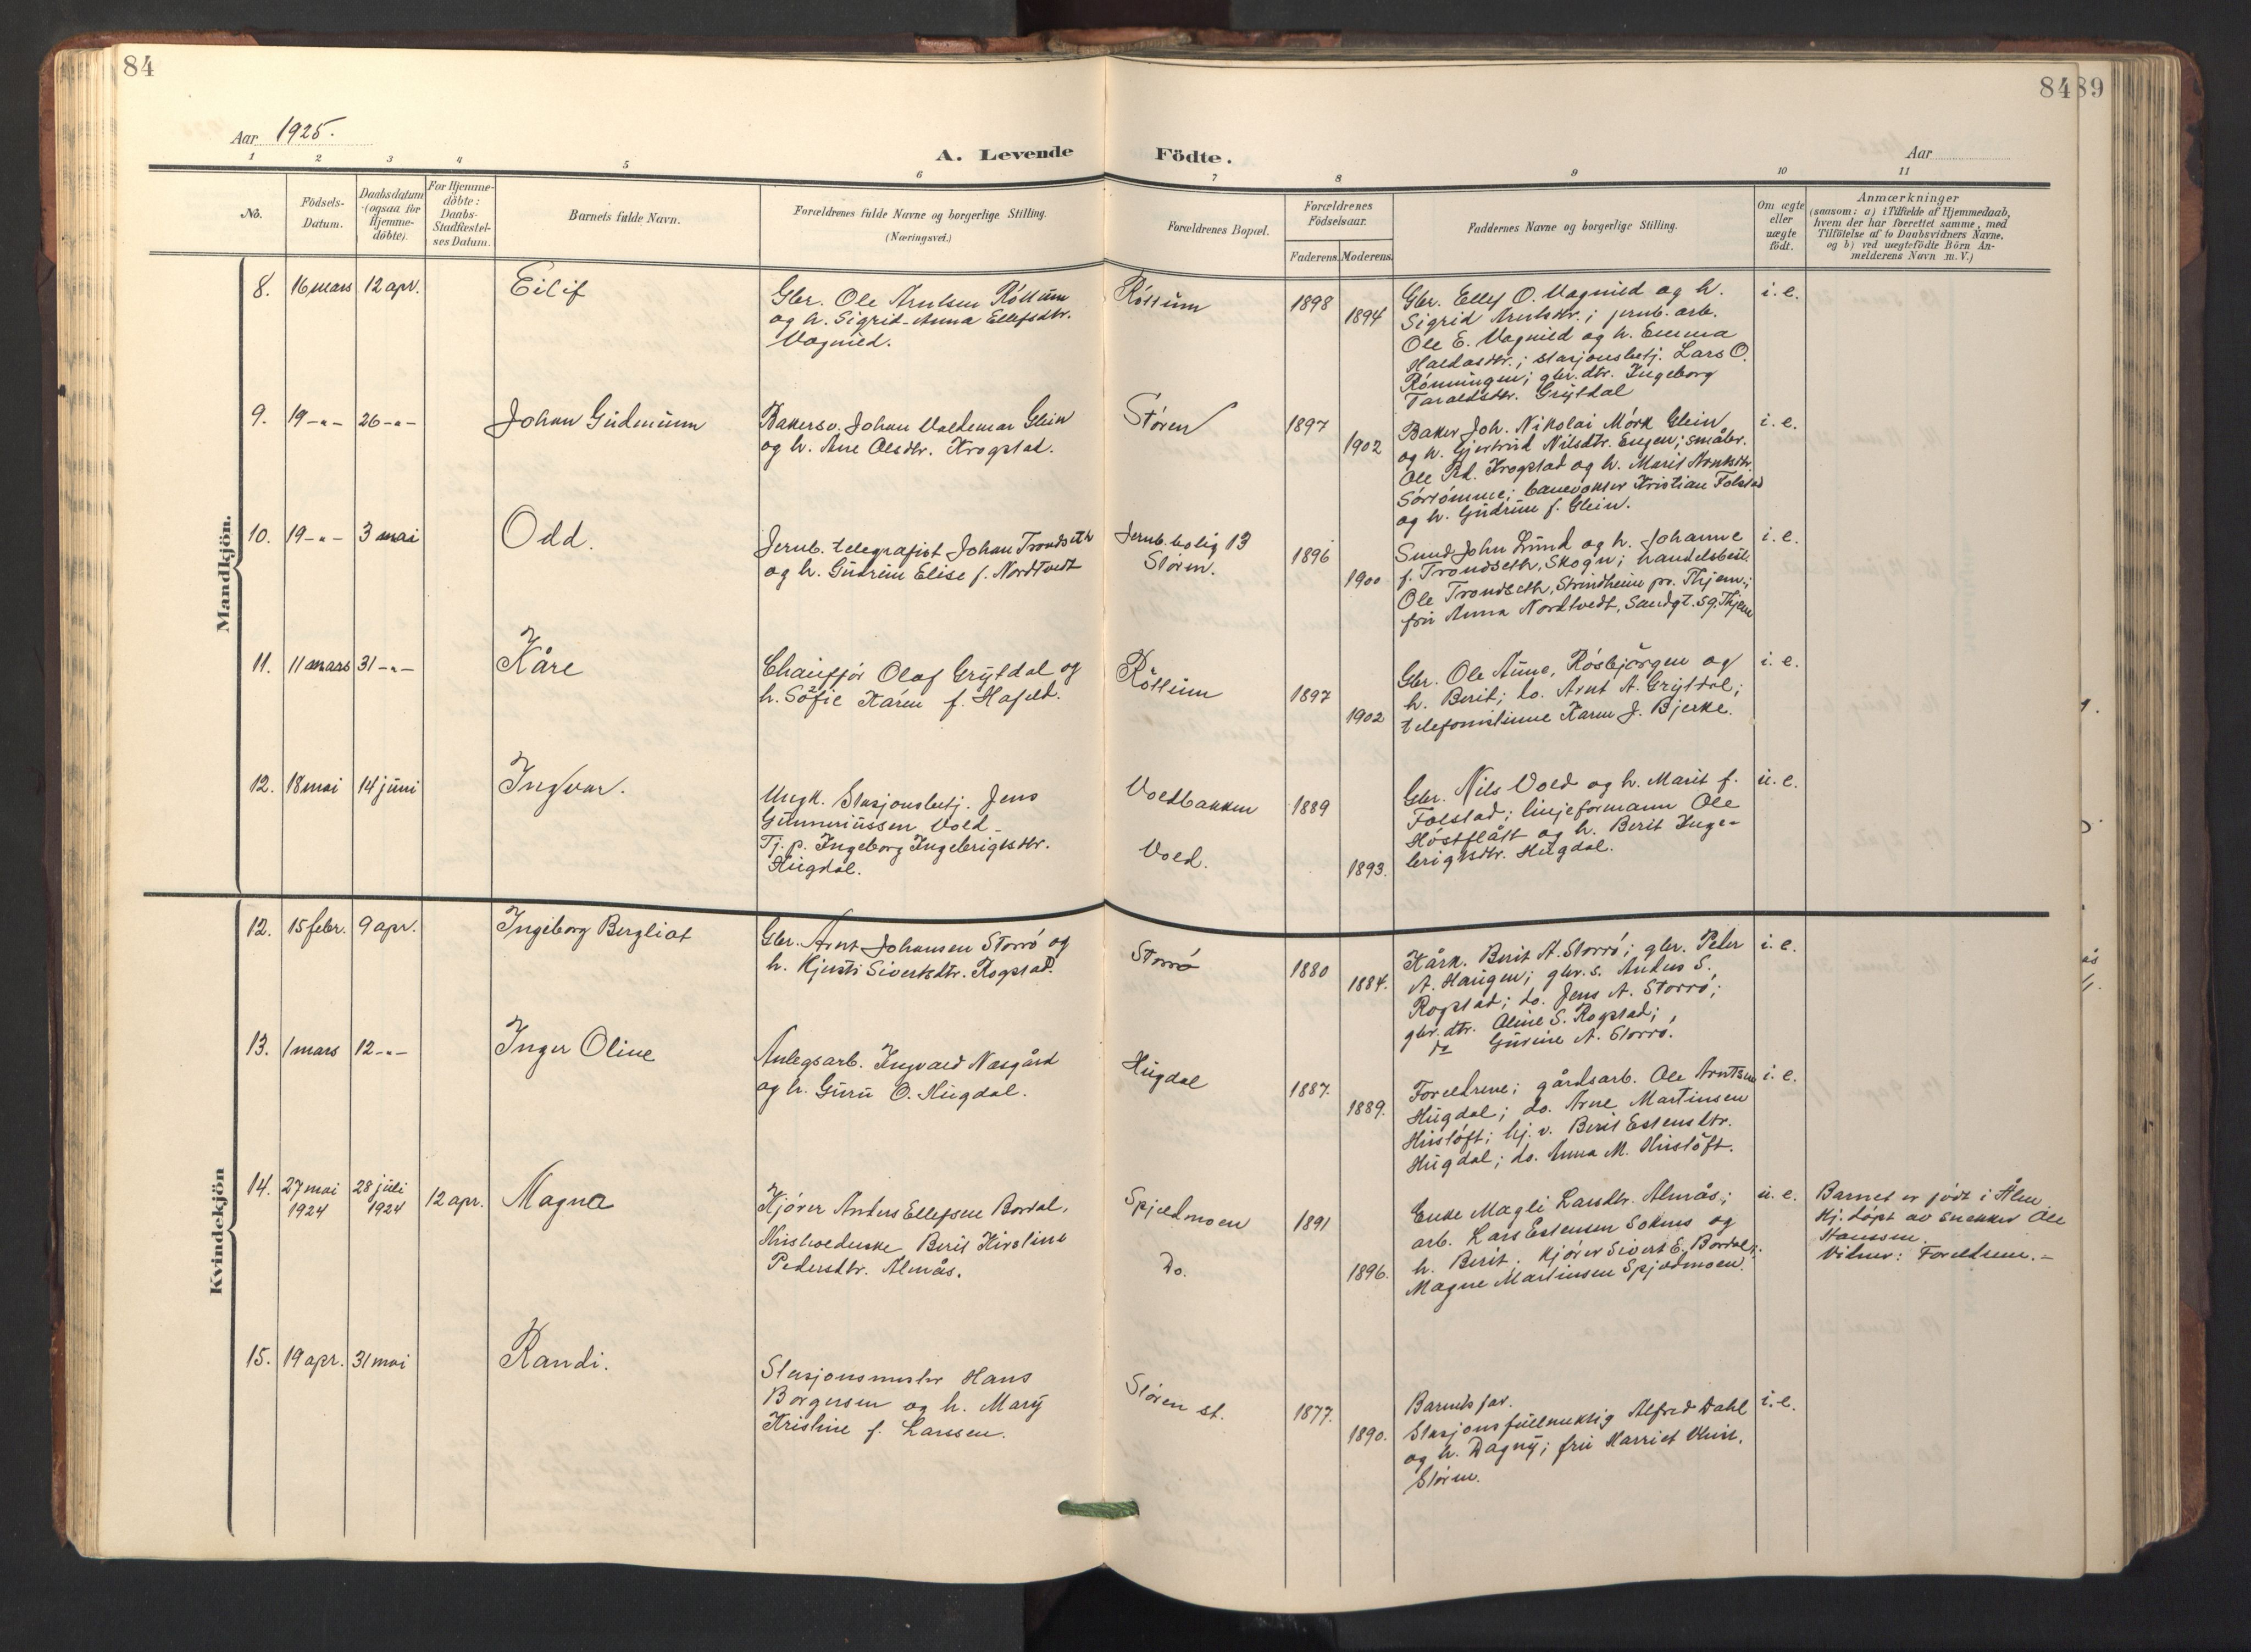 84
8489
Aar 1925.
A. Levende Födte.
Aar
1 2 3 4 5 6 7 8 9 10 11
No.
Födsels-
Datum.
Daabsdatum
(ogsaa for
Hjemme-
döbte).
For Hjemme-
döbte:
Daabs-
Stadfæstel-
ses Datum.
Barnets fulde Navn.
Forældrenes fulde Navne og borgerlige Stilling.
(Næringsvei.)
Forældrenes Bopæl.
Forældrenes
Födselsaar.
Faderens.
Moderens.
Faddernes Navne og borgerlige Stilling.
Om ægte
eller
uægte
födt.
Anmærkninger
(saasom: a) i Tilfælde af Hjemmedaab,
hvem der har forrettet samme, med
Tilföielse af to Daabsvidners Navne,
og b) ved uægtefödte Börn An-
melderens Navn m. V.)
Mandkjön.
8. 16 mars 12 apr.
Eilif
Gbr. Ole Arntsen Röttum
og h. Sigrid-Anna Ellefsdtr.
Vagnild.
Röttum
1898
1894
Gbr. Ellef O. Vagnild og h.
Sigrid Arntsdtr.; jernb. arb.
Ole E. Vagnild og h. Emma
Haldosdtr.; stasjonsbetj. Lars O.
Rönningen; gbr. dtr. Ingeborg
Taraldsdtr. Grytdal
i. e.
9. 19 -"- 26 -"-
Johan Gudmunn
Bakersv. Johan Valdemar Glein
og h. Ane Olsdtr. Krogstad.
Stören
1897
1902
Baker Joh. Nikolai Mörk Glein
og h. Gjertrud Nilsdtr. Engen; småbr.
Ole Pd. Krogstad og h. Marit Arntsdtr.
Sörrömme; banevokter Kristian Folstad
og h. Gudrun f. Glein.
i. e.
10. 19 -"- 3 mai
Odd.
Jernb. telegrafist Johan Trondseth
og h. Gudrun Elise f. Nordtvedt
Jernb. bolig 13
Stören.
1896
1900
Smed John Lund og h. Johanne
f. Trondseth, Skogn; handelsbest.
Ole Trondseth, Strindheim pr. Thjem.;
fru Anna Nordtvedt, Sandgt. 59, Thjem
i. e.
11. 11 mars 31 -"-
Kåre
Chaufför Olaf Grytdal og
h. Sofie Karen f. Hafeld.
Röttum
1897
1902
Gbr. Ole Aune, Rösbjörgen og
h. Berit; do. Arnt A. Grytdal;
telefonistinne Karen J. Bjerke.
i. e.
12. 18 mai 14 juni
Ingvar.
Ungk. Stasjonsbetj. Jens
Gunneriussen Vold -
Tj. p. Ingeborg Ingebrigtsdtr.
Hugdal.
Voldbakken
Vold.
1889
1893.
Gbr. Nils Vold og h. Marit f.
Folstad; linjeformann Ole
Höstflått og h. Berit Inge-
brigtsdtr. Hugdal.
u. e.
Kvindekjön
12. 15 febr. 9 apr.
Ingeborg Bergliot
Gbr. Arnt Johansen Storrö og
h. Kjersti Sivertsdtr. Rogstad.
Storrö
1880
1884.
Kårk. Berit A. Storrö; gbr. Peter
A. Haugen; gbr. s. Anders S.
Rogstad; do. Jens A. Storrö;
gbr. dtr. Oline S. Rogstad;
do Gurine A. Storrö.
i. e.
13. 1 mars 12 -"-
Inger Oline
Anlegsarb. Ingvald Næsgård
og h. Guru O. Hugdal.
Hugdal
1887.
1889.
Foreldrene; gårdsarb. Ole Arntsen
Hugdal; do. Arne Martinsen
Husloft; hj. v. Berit Estensdtr.
Hugdal; do. Anna M. Husloft.
i. e.
14. 27 mai 1924 28 juli 1924 12 apr.
Magna
Kjörer Anders Ellefsen Bordal,
Husholderske Berit Kirstine
Pedersdtr. Almås.
Spjeldmoen
Do.
1891
1896.
Enke Magli Larsdtr. Almås;
arb. Lars Estensen Soknes og
h. Berit. Kjörer Sivert E. Bordal;
Magne Martinsen Spjeldmoen.
u. e.
Barnet er födt i Ålen
Hj. döpt av snekker Ole
Hanssen.
Vitner: Foreldrene. -
15. 19 apr. 31 mai
Randi.
Stasjonsmester Hans
Borgersen og h. Mary
Kristine f. Larssen.
Stören st.
1877.
1890.
Barnets far.
Stasjonsfullmektig Alfred Dahl
og h. Dagny; fru Harriet
Stören.
i. e.